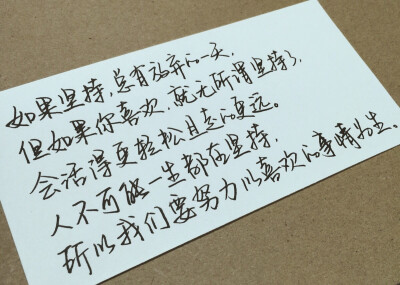 如果坚持,总有放弃的一天,
但如果你喜欢,就无所谓坚持了,
会活得更轻松且走的更远。
人不可能一生都在坚持,
所以我们要努力以喜欢的事情为生。